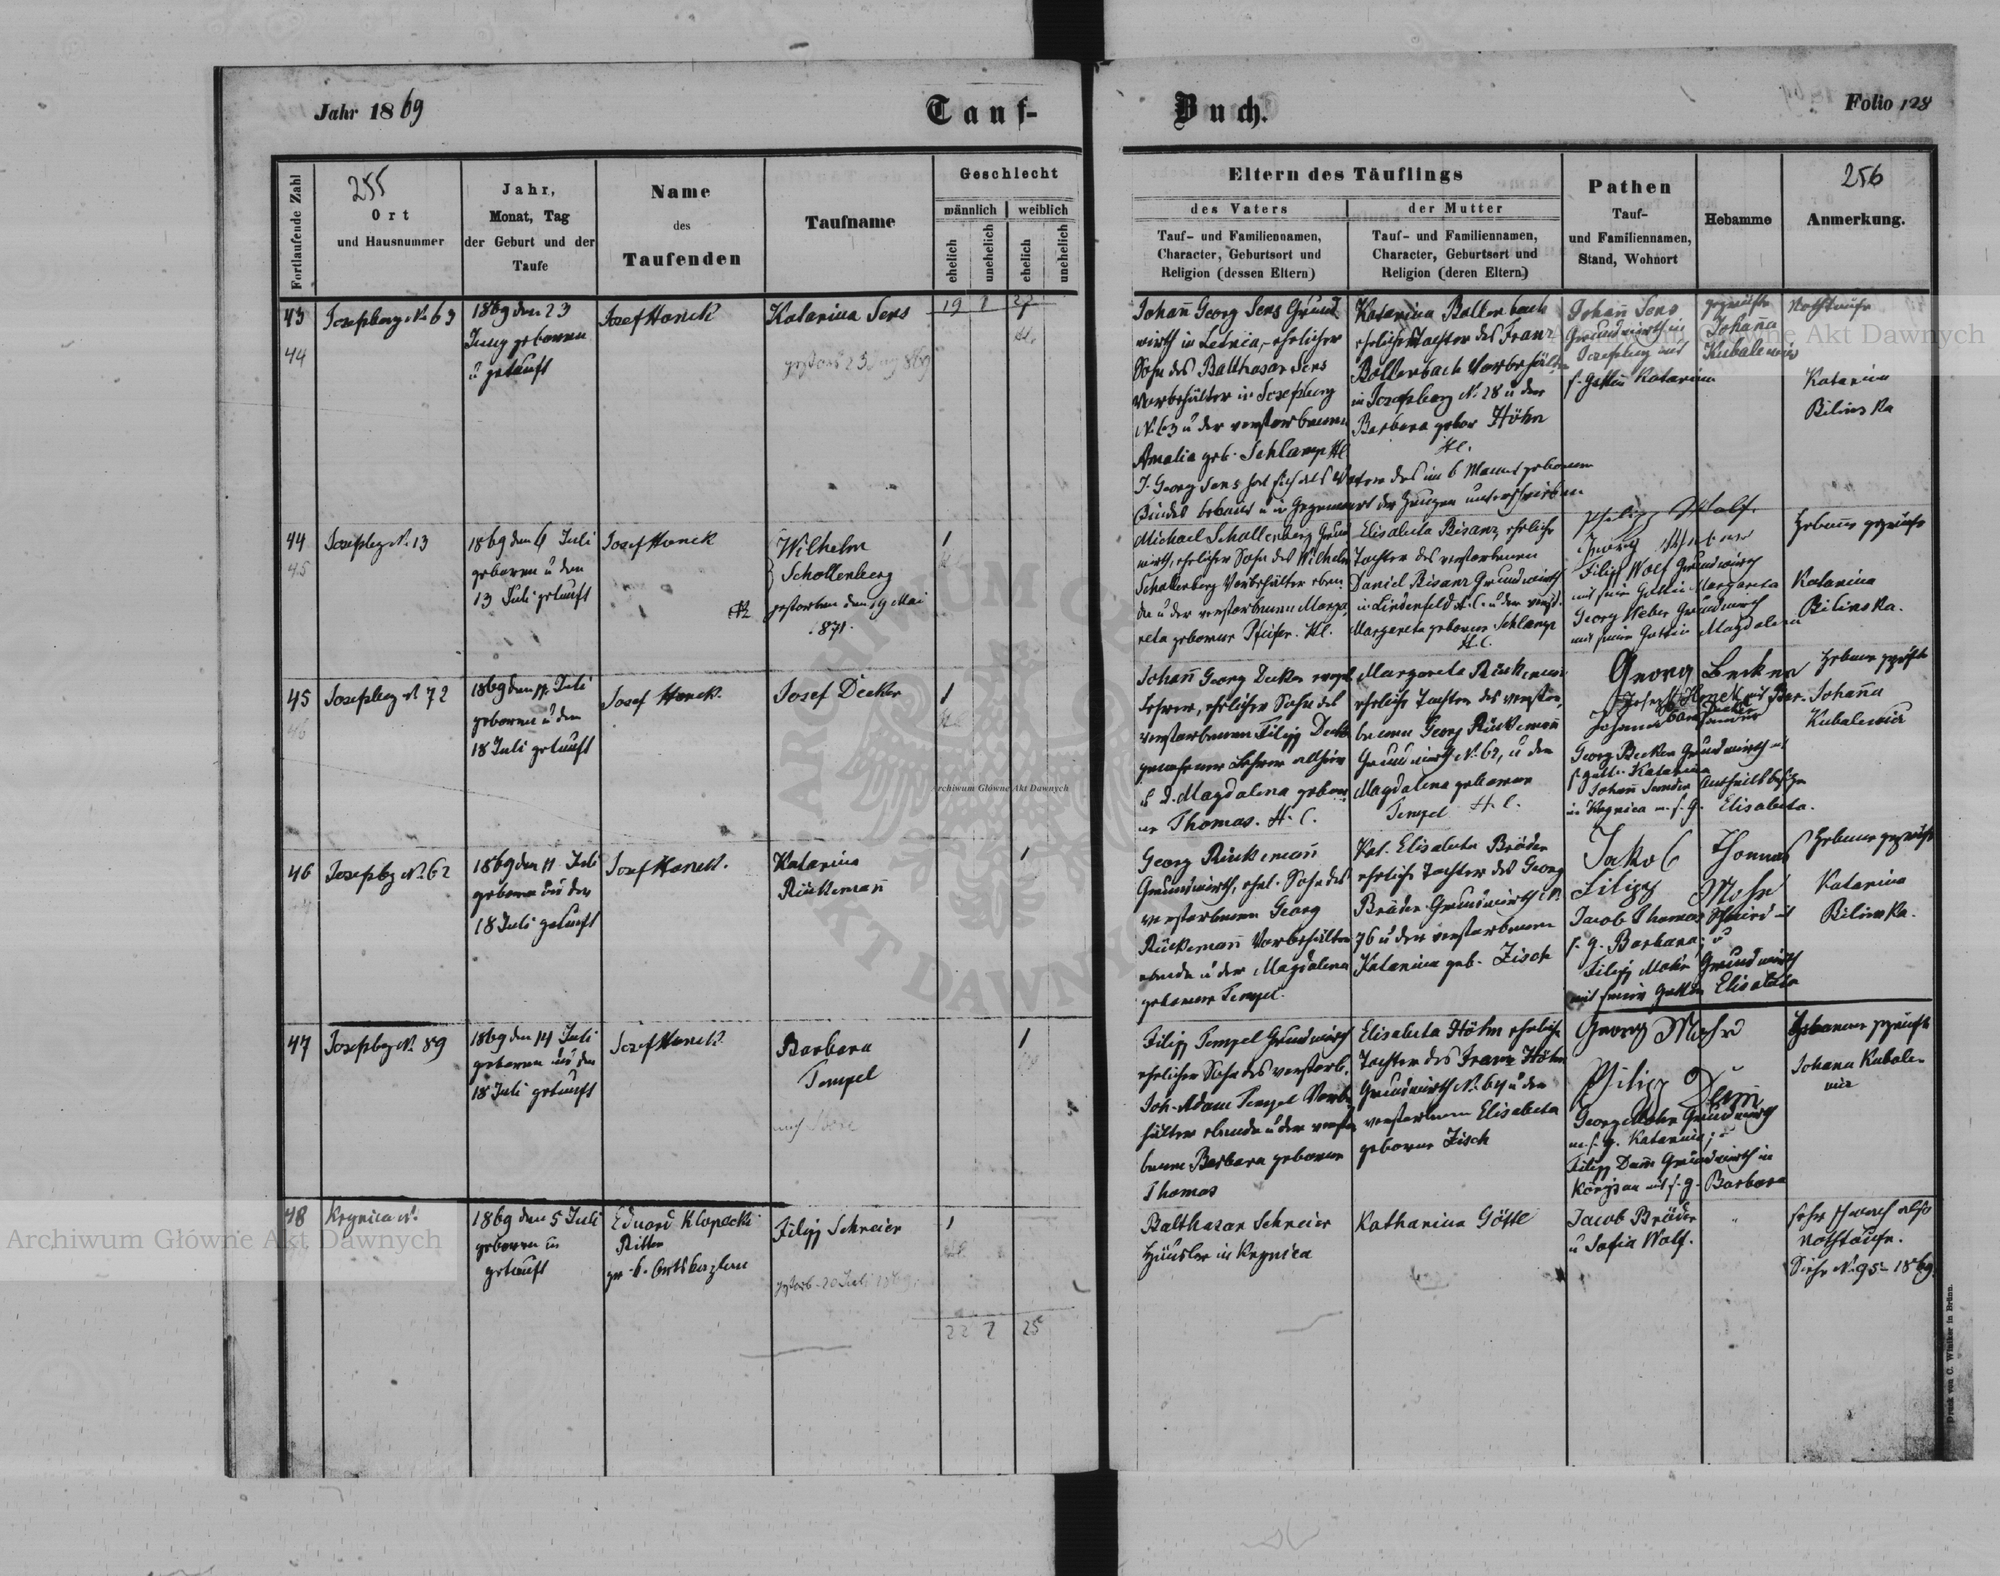 Jahr 1869
Tauf-
Buch.
Folio 128
Fortlaufende Zahl
255
Ort
und Hausnummer
Jahr,
Monat, Tag
der Geburt und der
Taufe
Name
des
Taufenden
Taufname
Geschlecht
männlich
weiblich
ehelich
unehelich
ehelich
unehelich
Eltern des Täuflings
des Vaters
Tauf- und Familiennamen,
Character, Geburtsort und
Religion (dessen Eltern)
der Mutter
Tauf- und Familiennamen,
Character, Geburtsort und
Religion (deren Eltern)
Pathen
Tauf-
und Familiennamen,
Stand, Wohnort
Hebamme
256
Anmerkung.
43
44
Josefsberg No 63
1869 den 23
Juny geboren
u getauft
Josef Honek
Katarina Sens
Johañ Georg Sens Grund
wirth in Letnia, ehelicher
Sohn des Balthasar Sens
Vorbehälter in Josefsberg
No 63 u der verstorbenen
Amalia geb. Schlamp HC.
J. Georg Sens hat sich als Vater des im 6 Monat geborenen
Kindes bekannt u in Gegenwart der Zeugen unterschrieben
Katarina Bollenbach
eheliche Tochter des Franz
Bollenbach Vorbehälter
in Josefsberg No 28 u der
Barbara gebor Höhn
HC.
Johañ Sens
Grundwirth in
Josefsberg mit
s. Gattin Katarina
geprüfte
Johañа
Kubalewicz
Nothtaufe
Katarina
Bilinska
44
45
Josefsbg No 13
1869 den 6 Juli
geboren u den
13 Juli getauft
Josef Honek
Wilhelm
Schollenberg
gestorben den 19 Mai
1871.
1
Michael Schollenberg Grund
wirth, ehelicher Sohn des Wilhelm
Schollenberg Vorbehälter eben
da u der verstorbenen Marga
reta geborner Pfeifer. HC.
Elisabeta Bisanz eheliche
Tochter des verstorbenen
Daniel Bisanz Grundwirth
in Lindenfeld H.C. u der verst.
Margareta geborner Schlamp
H.C.
Philipp Wolf.
Georg Weber
Filipp Wolf Grundwirth
mit seiner Gattin Margareta
Georg Weber Grundwirth
mit seiner Gattin Magdalena
Hebamme geprüfte
Katarina
Bilinska.
45
46
Josefsbeg No 72
1869 den 17 Juli
geboren u den
18 Juli getauft
Josef Honek.
Josef Decker
1
Johañ Georg Decker
Lehrer, ehelicher Sohn des
verstorbenen Filipp Decker
gewesener Lehrer allhier
u d. Magdalena geborne
ner Thomas. H.C.
Margareta Rückemañ
eheliche Tochter des verstor
benen Georg Rückemañ
Grundwirth No 62, u der
Magdalena geborene
Tempel H.C.
Georg Becker
Georg Becker Grundwirth mit
s. Gatt. Katarina
in Krynica m. s. G. Elisabeta.
Hebamme geprüfte
Johaña
Kubalewicz
46
Josefsbg No 62
1869 den 11 Juli
geboren und den
18 Juli getauft
Josef Honek.
Katarina
Rückemañ
1
Georg Rückemañ
Grundwirth, ehel. Sohn des
verstorbenen Georg
Rückemañ Vorbehälter
ebenda u der Magdalena
geborene Tempel.
Kat. Elisabeta Bräder
eheliche Tochter des Georg
Bräder Grundwirth No
76 u der verstorbenen
Katarina geb. Zisch
Jakob Thomas
Filipp Mohr
Jacob Thomas Schmied mit
s. g. Barbara; u
Filipp Mohr Grundwirth
mit seiner Gattin Elisabeta
Hebamme geprüfte
Katarina
Bilinska.
47
Josefsbeg No 89
1869 den 14 Juli
geboren und den
18 Juli getauft
Josef Honek
Barbara
Tempel
1
Filipp Tempel Grundwirth
ehelicher Sohn des verstorb.
Joh. Adam Tempel Vorbe
hälter ebenda u der verstor
benen Barbara geborene
Thomas
Elisabeta Höhn eheliche
Tochter des Franz Höhn
Grundwirth No 64 u der
verstorbenen Elisabeta
geborene Zisch
Georg Mohr
Philipp Dam
Georg Mohr Grundwirth
m. s. g. Katarina; u
Filipp Dam Grundwirth in
Königsau mit s. g. Barbara
Hebamme geprüfte
Johana Kubale-
wicz
48
Krynica No.
1869 den 5 Juli
geboren u
getauft
Eduard Klopacki
Ritter
Filipp Schreier
gestorb. 20 Juli 1869
1
Balthasar Schreier
Häusler in Krynica
Katharina Göttl
Jacob Bräder
u Sofia Wolf.
"
sehr schwach also
Nothtaufe.
Siehe No 95 - 1869.
22 2 25
Druck von C. Winiker in Brünn.
Archiwum Główne Akt Dawnych
Archiwum Główne Akt Dawnych
Archiwum Główne Akt Dawnych
ARCHIWUM GŁÓWNE AKT DAWNYCH